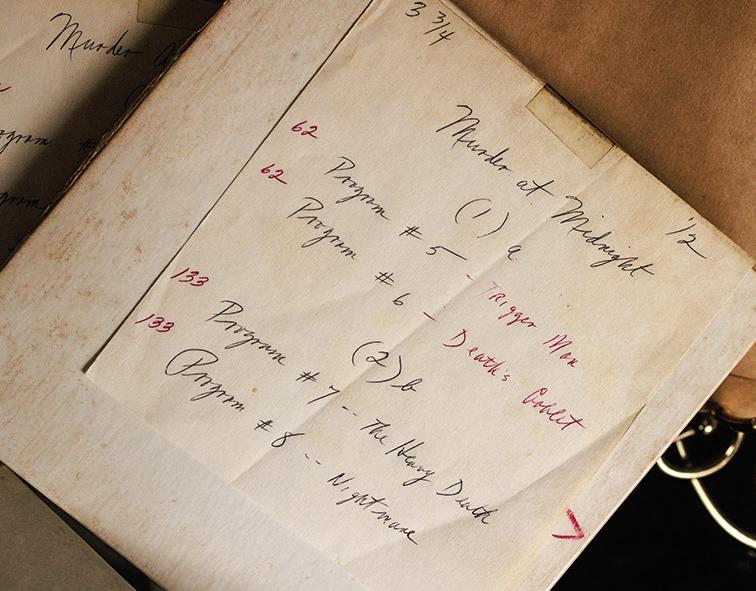 Murder
Program #
3 3/4
1/2
Murder at Midnight
(1) a
62 Program # 5 - Trigger Man
62 Program # 6 - Death's Goblet
(2) b
133 Program # 7 -- The Heavy Death
133 (Program # 8 -- Nightmare
>